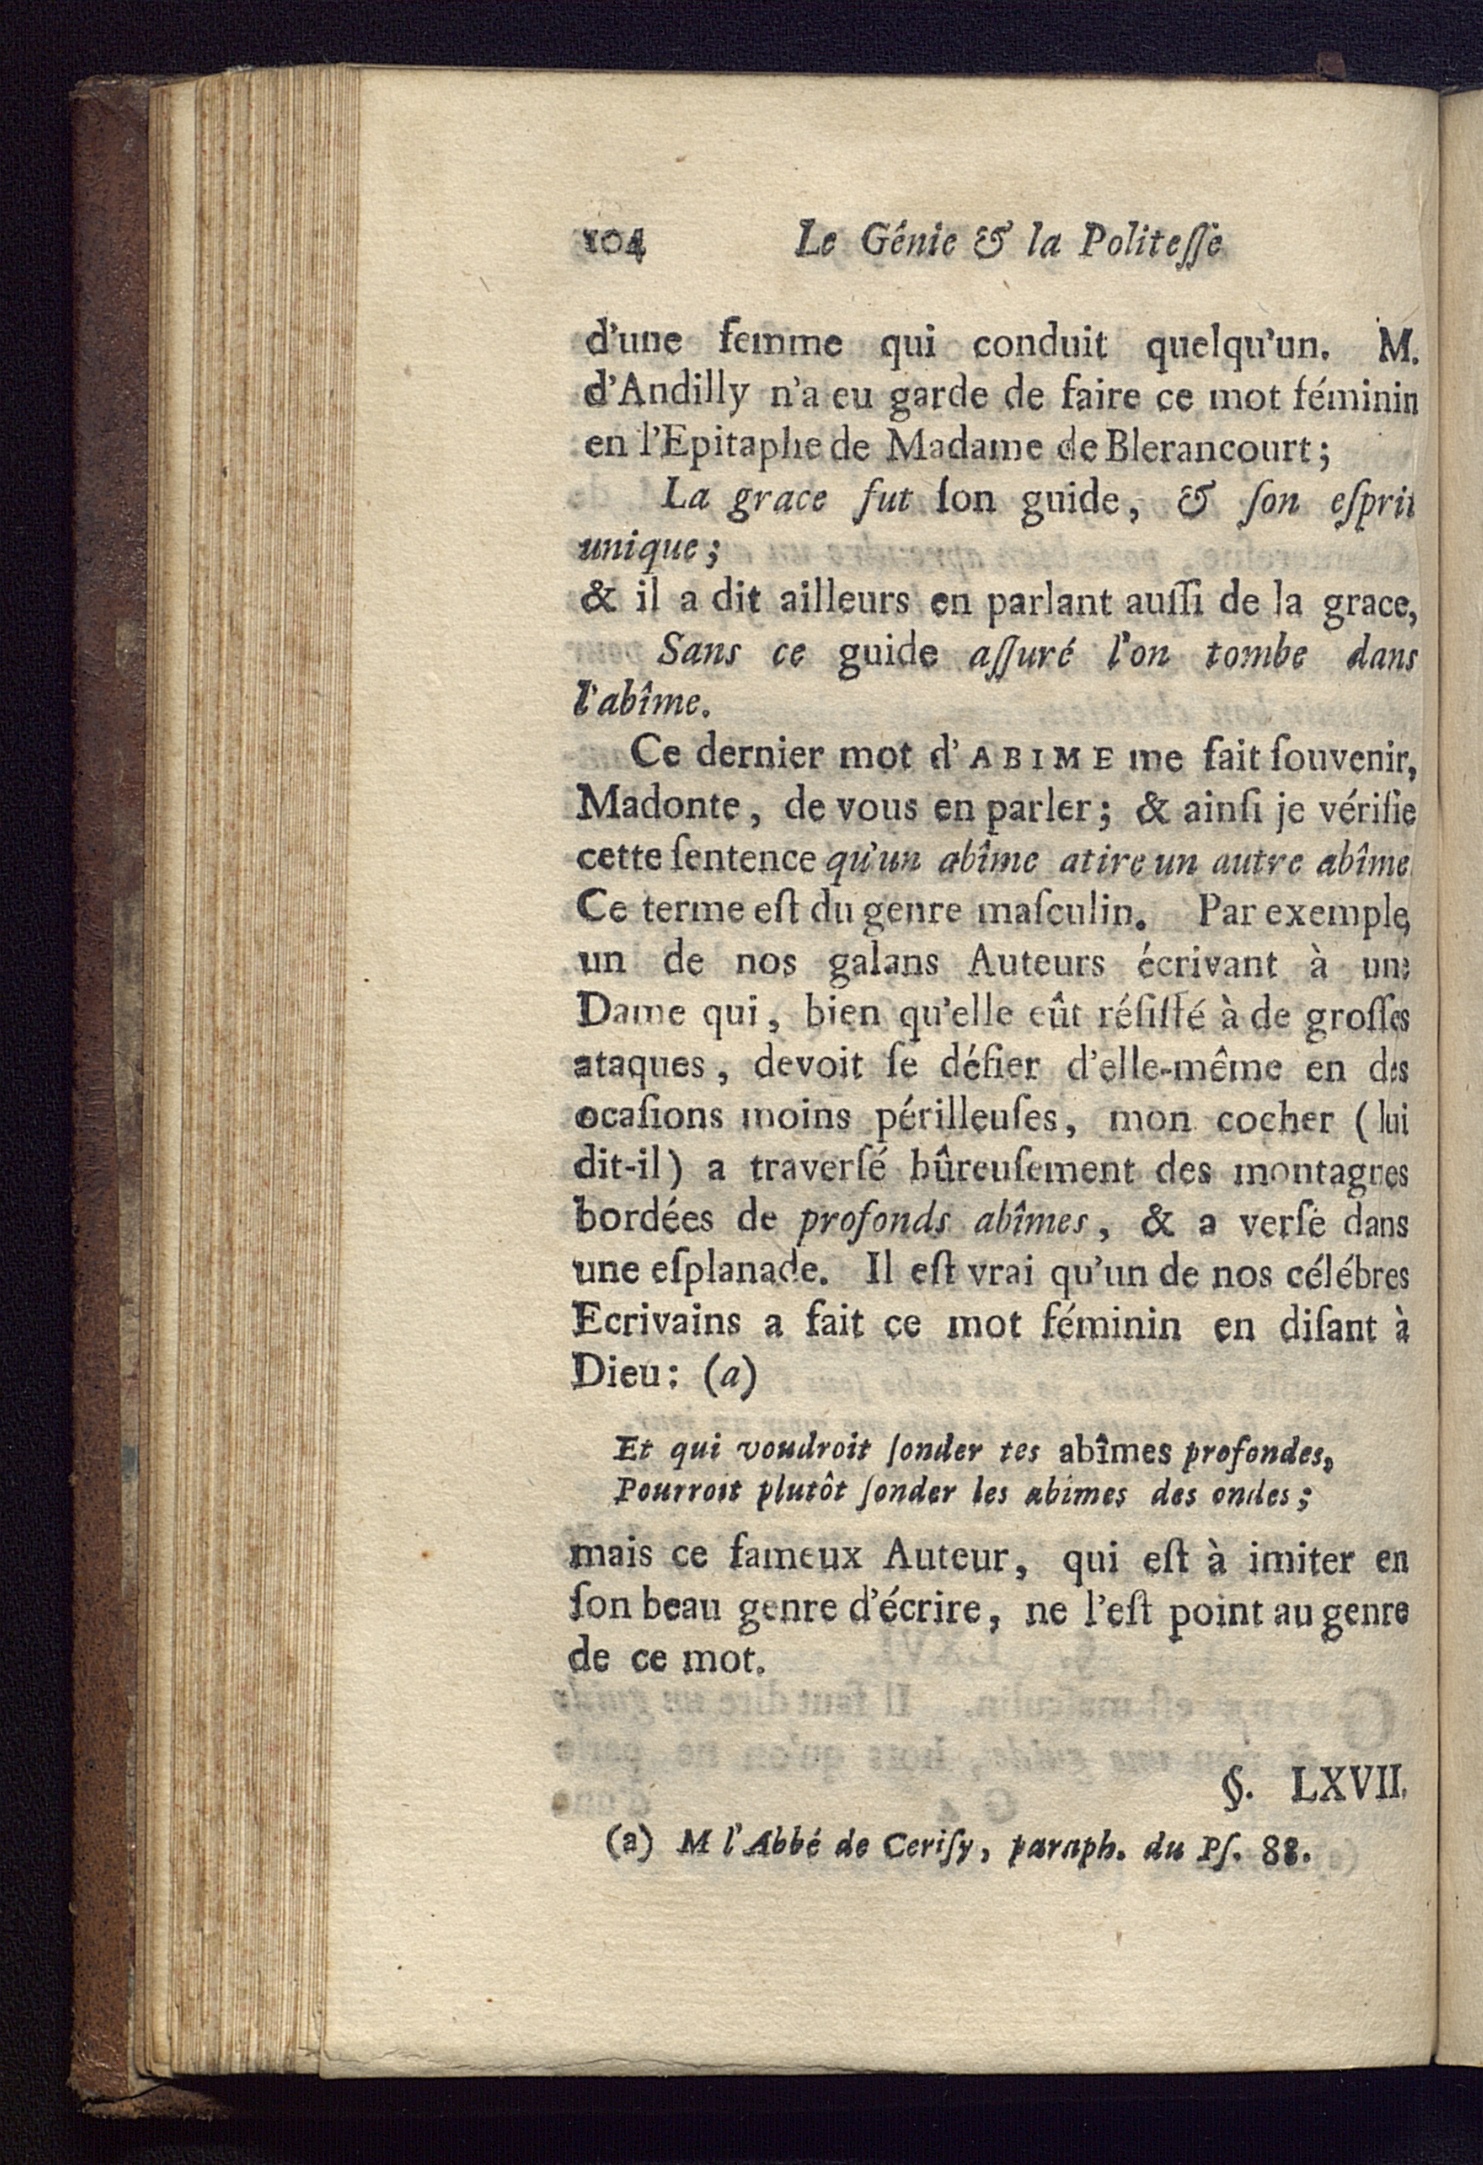 104 Le Génie & la Politeſſe
d'une femme qui conduit quelqu'un. M.
d'Andilly n'a eu garde de faire ce mot féminin
en l'Epitaphe de Madame de Blerancourt;
La grace fut ſon guide, & ſon eſprit
unique;
& il a dit ailleurs en parlant auſſi de la grace,
Sans ce guide aſſuré l'on tombe dans
l'abîme.
Ce dernier mot d'ABIME me fait ſouvenir,
Madonte, de vous en parler; & ainſi je vérifie
cette ſentence qu'un abîme atire un autre abîme
Ce terme eſt du genre maſculin. Par exemple,
un de nos galans Auteurs écrivant à une
Dame qui, bien qu'elle eût réſiſté à de groſſes
ataques, devoit ſe défier d'elle-même en des
ocaſions moins périlleuſes, mon cocher (lui
dit-il) a traverſé hûreuſement des montagnes
bordées de profonds abîmes, & a verſé dans
une eſplanade. Il eſt vrai qu'un de nos célébres
Ecrivains a fait ce mot féminin en diſant à
Dieu: (a)
Et qui voudroit ſonder tes abîmes profondes,
Pourroit plutôt ſonder les abimes des ondes;
mais ce fameux Auteur, qui eſt à imiter en
ſon beau genre d'écrire, ne l'eſt point au genre
de ce mot.
§. LXVII.
(a) M l'Abbé de Ceriſy, paraph. du Pſ. 88.